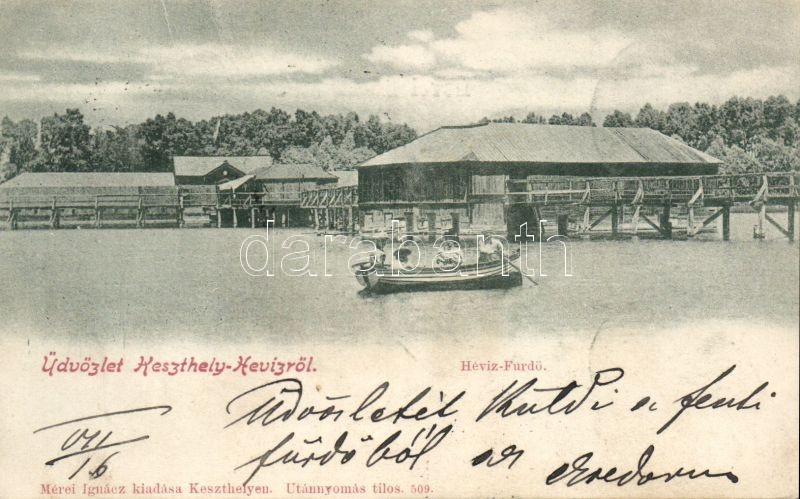 darabanth
Üdvözlet Keszthely-Hevizről.
Héviz-Furdö.
Üdvösletét Küldi a fenti
fürdőből az
VII/16
Mérei Ignácz kiadása Keszthelyen. Utánnyomás tilos. 509.